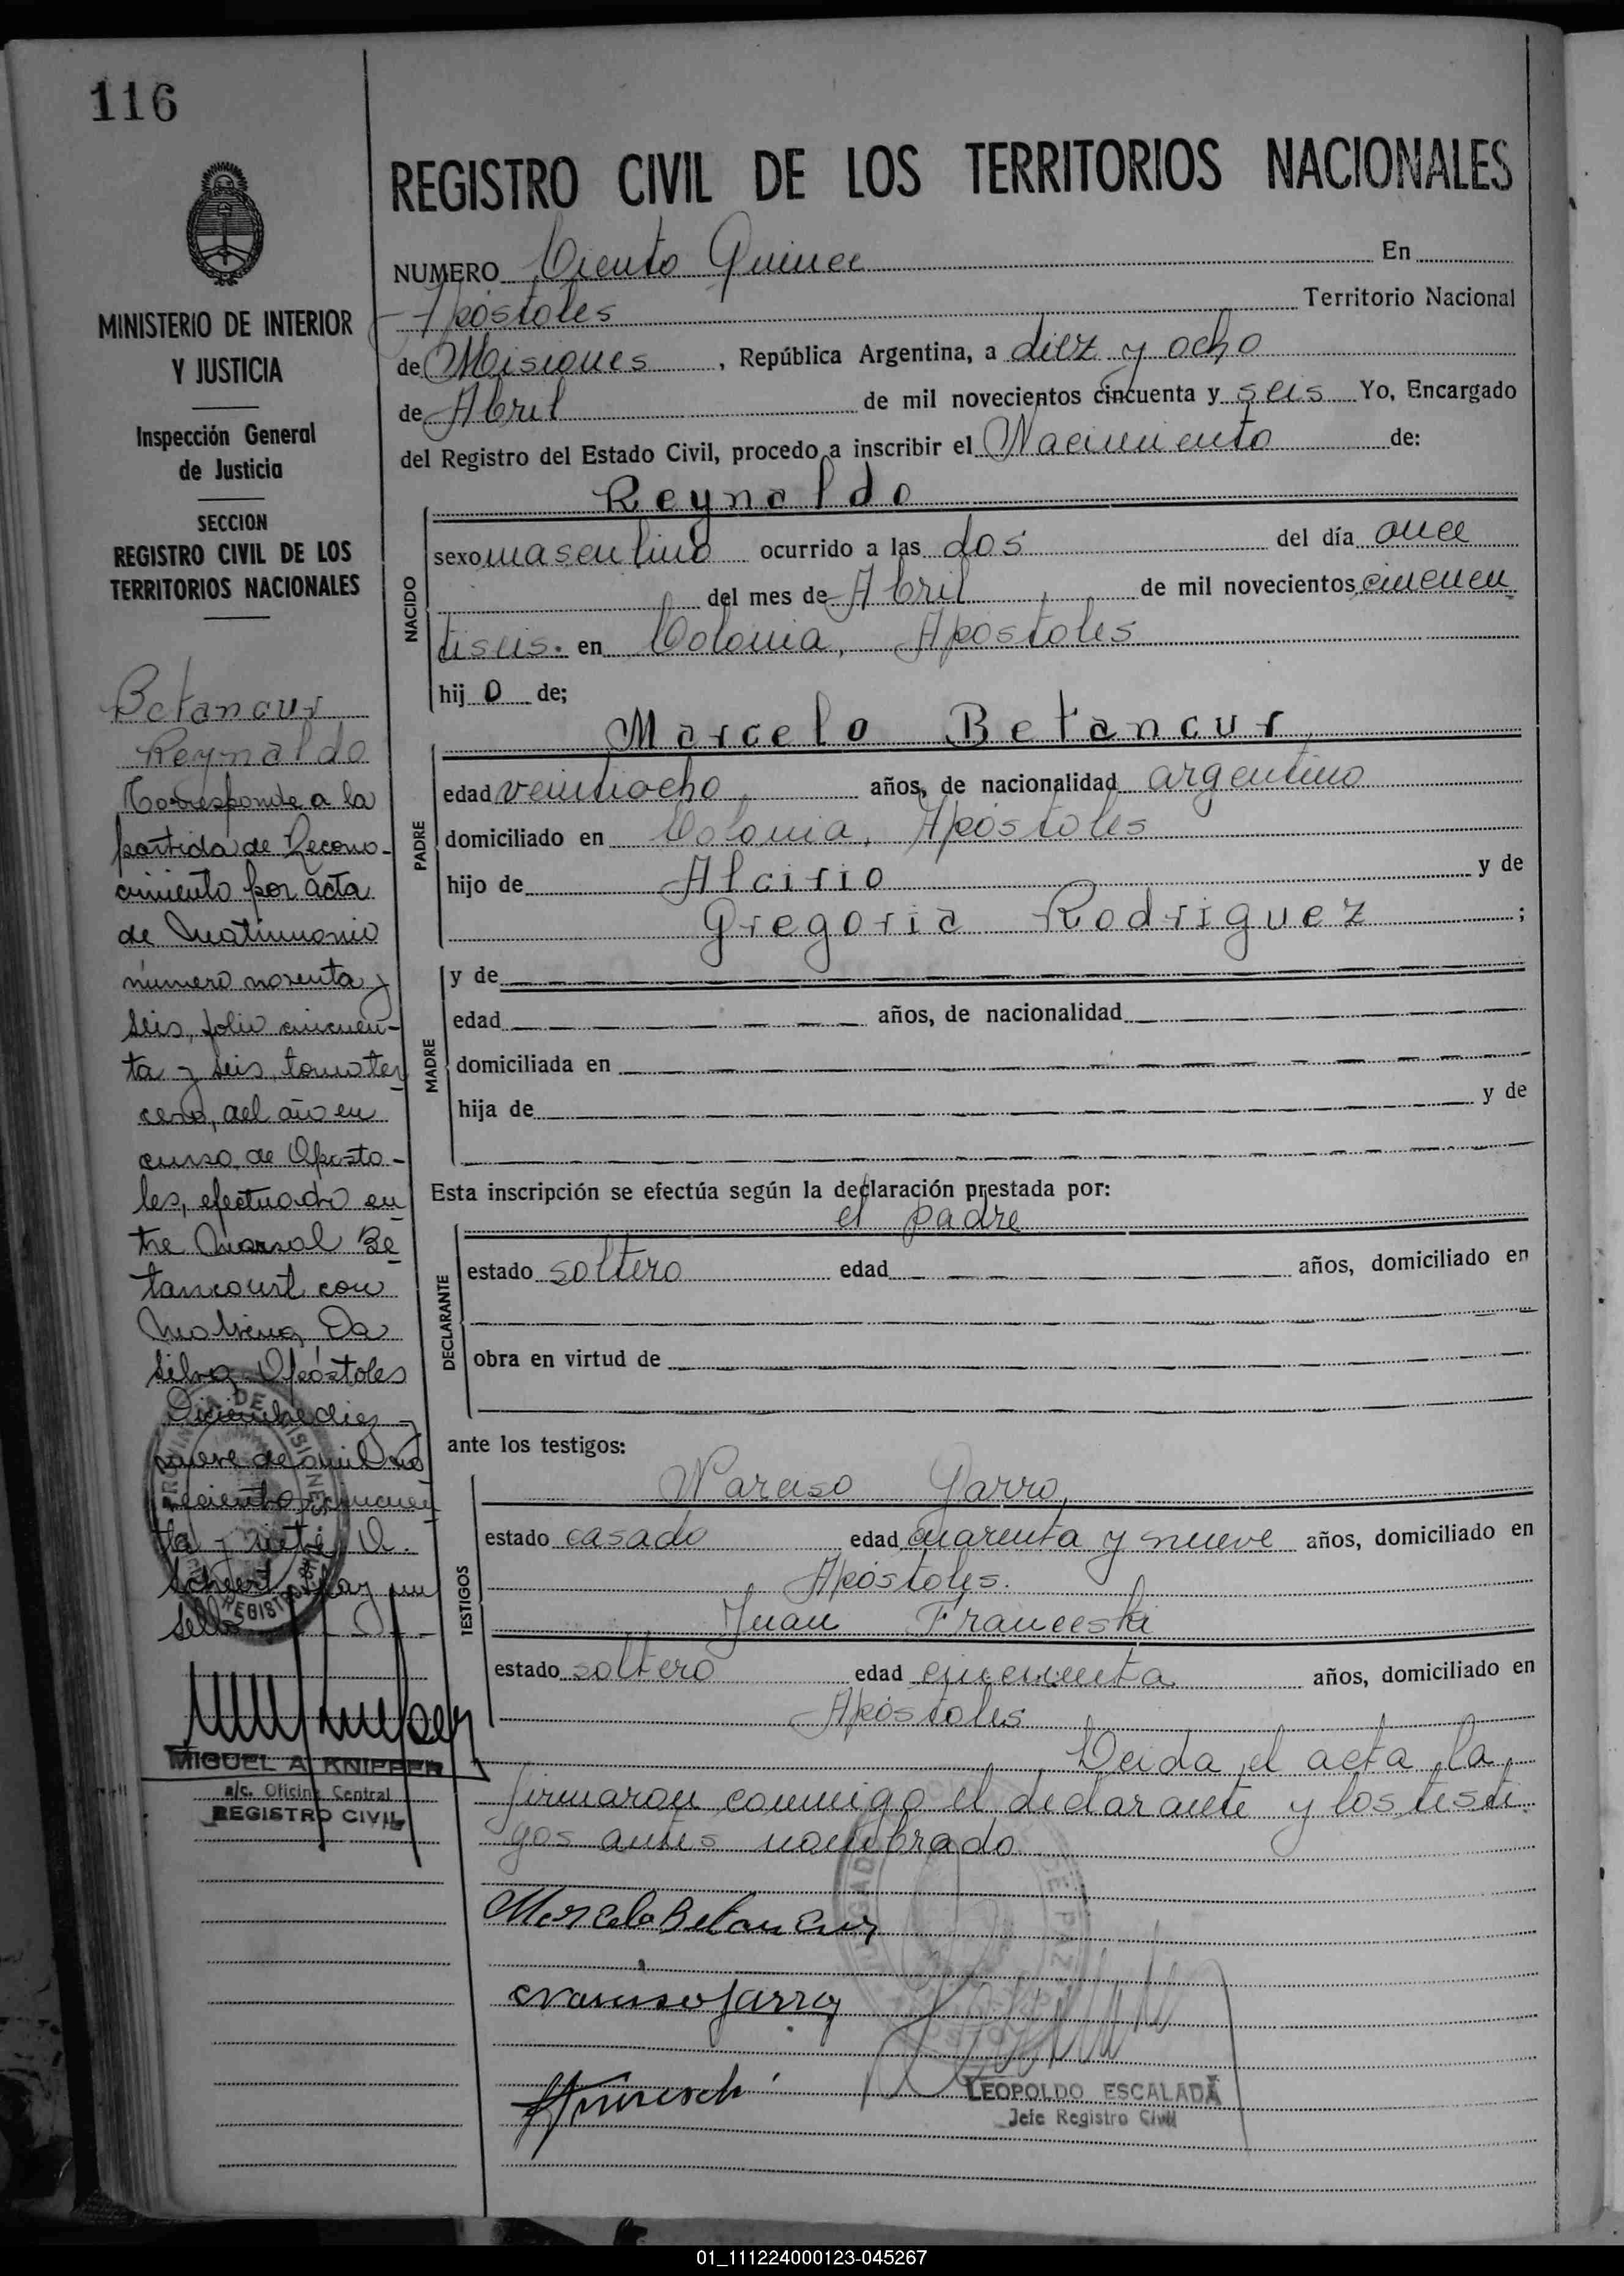 116
MINISTERIO DE INTERIOR
Y JUSTICIA
Inspección General
de Justicia
SECCION
REGISTRO CIVIL DE LOS
TERRITORIOS NACIONALES
Betancur
Reynaldo
Corresponde a la
partida de Recono-
cimiento por acta
de Matrimonio
número noventa y
seis, folio cincuen-
ta y seis, tomo ter
cero, del año en
curso, de Aposto-
les, efectuado en
tre Marsal Be
tancourt con
Da
Silva. Apóstoles
Diciembre diez y
nueve de mil no
vecientos cincuen
ta y siete
Hay un
sello
MIGUEL A. KNIPPER
a/c. Oficina Central
REGISTRO CIVIL
REGISTRO CIVIL DE LOS TERRITORIOS NACIONALES
NUMERO Ciento Quince En
Apóstoles Territorio Nacional
de Misiones , República Argentina, a diez y ocho
de Abril de mil novecientos cincuenta y seis Yo, Encargado
del Registro del Estado Civil, procedo a inscribir el Nacimiento de:
NACIDO
Reynaldo
sexo masculino ocurrido a las dos del día once
del mes de Abril de mil novecientos cincuen
tiseis. en Colonia, Apostoles
hij o de;
PADRE
Marcelo Betancur
edad veintiocho años, de nacionalidad argentino
domiciliado en Colonia, Apóstoles
hijo de Alcirio y de
Gregoria Rodriguez ;
MADRE
y de
edad años, de nacionalidad
domiciliada en
hija de y de
Esta inscripción se efectúa según la declaración prestada por:
DECLARANTE
el padre
estado soltero edad años, domiciliado en
obra en virtud de
ante los testigos:
TESTIGOS
Narciso Garro,
estado casado edad cuarenta y nueve años, domiciliado en
Apóstoles.
Juan Franceski
estado soltero edad cincuenta años, domiciliado en
Apóstoles
Leida el acta la
firmaron conmigo el declarante y los testi
gos antes nombrado
Marcelo Betancur
Narciso Garro
LEOPOLDO ESCALADA
Jefe Registro Civil
01_111224000123-045267